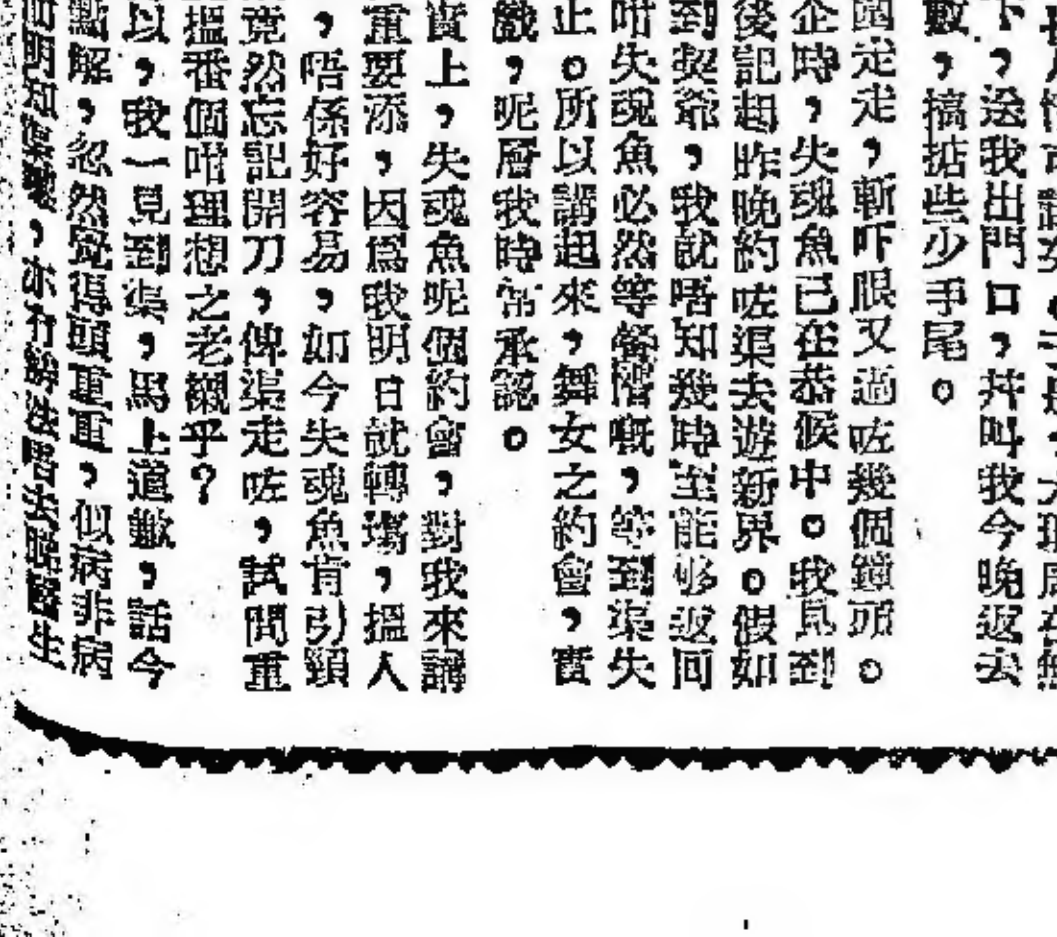 下,送我出門口,幷叫我今晚返去
數,搞掂些少手尾。
走走,斬吓眼又過咗幾個鐘頭。
企時,失魂魚已在恭候中。我見到
後記起昨晚約咗渠去遊新界。假如
到契爺,我就唔知幾時至能够返回
咁失魂魚必然等 嘅,等到渠失
止。所以講起來,舞女之約會,實
戲,呢層我時常承認。
實上,失魂魚呢個約會,對我來講
重要添,因爲我明日就轉塲,搵人
,唔係好容易,如今失魂魚肯引頸
竟然忘記開刀,俾渠走咗,試問重
搵番個咁理想之老襯乎?
以,我一見到渠,馬上道歉,話今
點解,忽然覺得頭重重,似病非病
明知 ,亦冇辦法唔去睇醫生